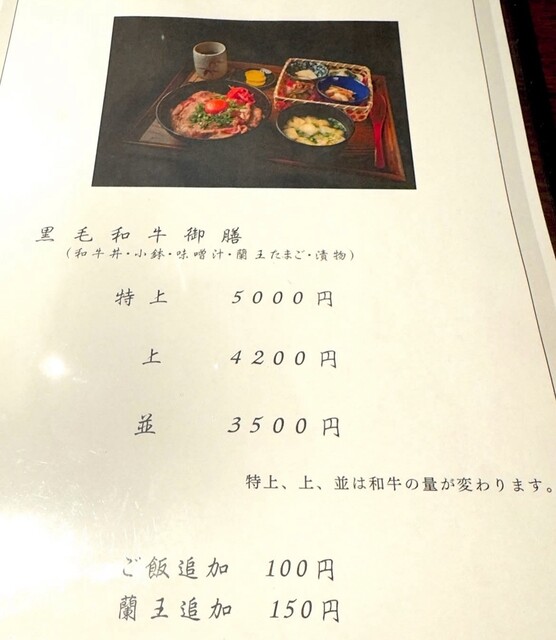 黒毛和牛御膳
(和牛丼・小鉢・味噌汁・蘭王たまご・漬物)
特上 5000円
上 4200円
並 3500円
特上、上、並は和牛の量が変わります。
ご飯追加 100円
蘭王追加 150円